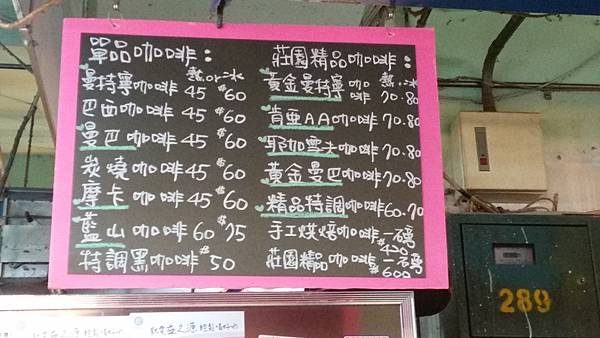 單品咖啡：
熱or冰
曼特寧咖啡 45 $60
巴西咖啡 45 $60
曼巴咖啡 45 $60
炭燒咖啡 45 $60
摩卡咖啡 45 $60
藍山咖啡 60 $75
特調黑咖啡 $50
莊園精品咖啡：
熱.冰
黃金曼特寧咖啡 70.80
肯亞AA咖啡 70.80
耶加雪夫咖啡 70.80
黃金曼巴咖啡 70.80
精品特調咖啡 60.70
手工烘焙咖啡一磅
$450
莊園精品咖啡一磅
$600
289